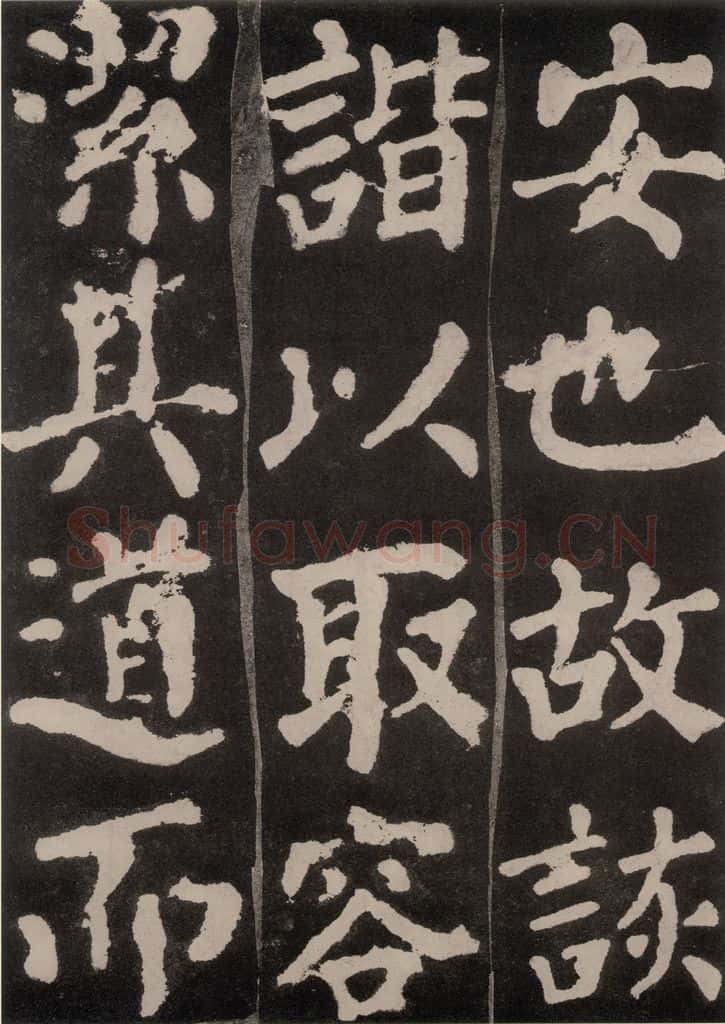 安也故詼
諧以取容
潔其道而
Shufawang.CN